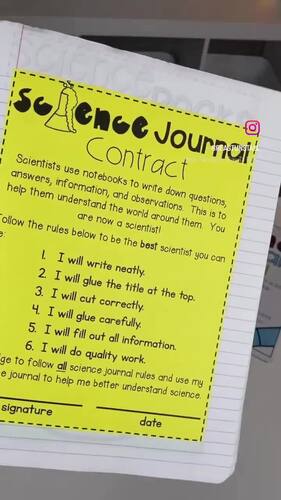 Science Journal
Contract
Scientists use notebooks to write down questions,
answers, information, and observations. This is to
help them understand the world around them. You
are now a scientist!
ollow the rules below to be the best scientist you can
e:
1. I will write neatly.
2. I will glue the title at the top.
3. I will cut correctly.
4. I will glue carefully.
5. I will fill out all information.
6. I will do quality work.
ge to follow all science journal rules and use my
e journal to help me better understand science.
signature date